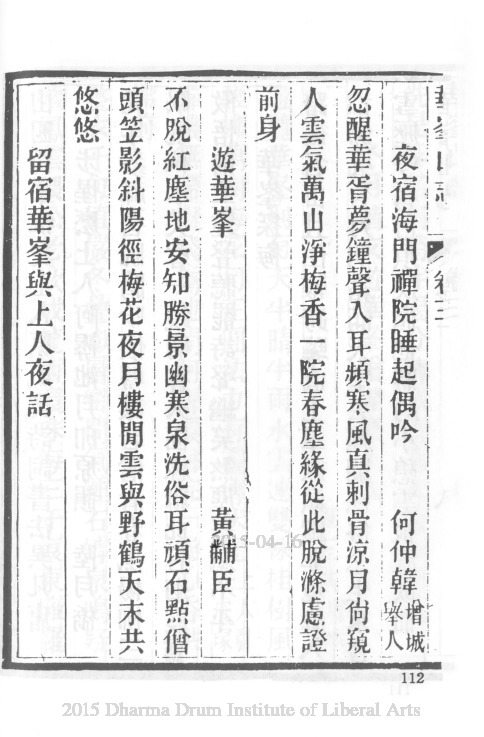 華峯山志 卷三
夜宿海門禪院睡起偶吟 何仲韓 增城舉人
忽醒華胥夢鐘聲入耳頻寒風真刺骨涼月尙窺
人雲氣萬山淨梅香一院春塵緣從此脫滌慮證
前身
遊華峯 黃黼臣
不脫紅塵地安知勝景幽寒泉洗俗耳頑石點僧
頭笠影斜陽徑梅花夜月樓閒雲與野鶴天末共
悠悠
留宿華峯與上人夜話
2015-04-16
112
2015 Dharma Drum Institute of Liberal Arts